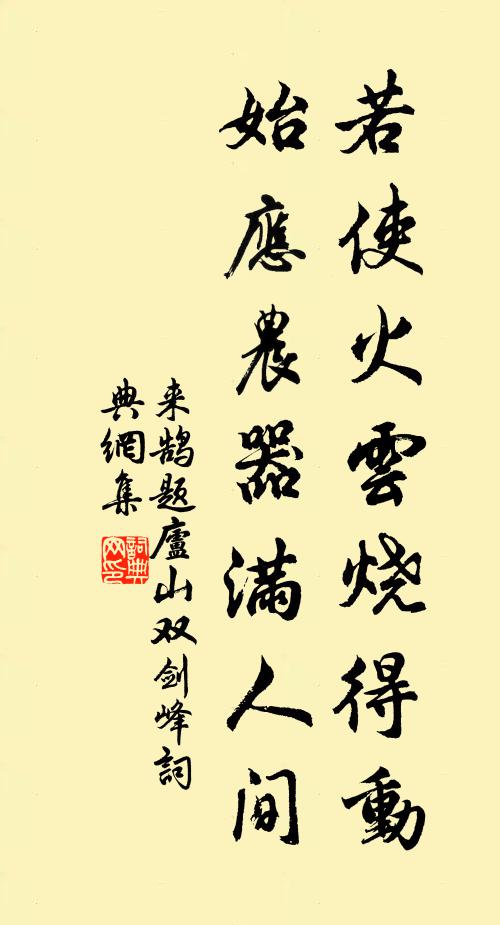 若使火雲烧得動
始應農器滿人间
来鹄题廬山双剑峰詞
典網集
詞典網印